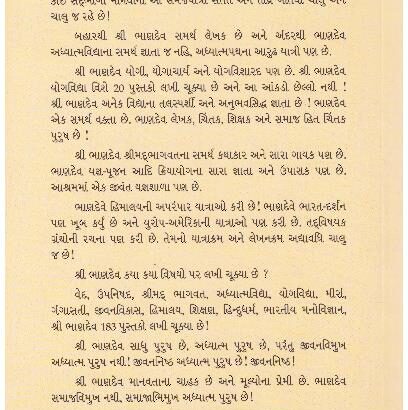 ચાલુ જ રહે છે!
બહારથી શ્રી ભાણદેવ સમર્થ લેખક છે અને અંદરથી ભાણદેવ
અધ્યાત્મવિદ્યાના સમર્થ જ્ઞાતા જ નહિ, અધ્યાત્મપથના આરુઢ યાત્રી પણ છે.
શ્રી ભાણદેવ યોગી, યોગાચાર્ય અને યોગવિશારદ પણ છે. શ્રી ભાણદેવ
યોગવિદ્યા વિશે 20 પુસ્તકો લખી ચૂક્યા છે અને આ આંકડો છેલ્લો નથી !
શ્રી ભાણદેવ અનેક વિદ્યાના તલસ્પર્શી અને અનુભવસિદ્ધ જ્ઞાતા છે ! ભાણદેવ
એક સમર્થ વક્તા છે. ભાણદેવ લેખક, ચિંતક, શિક્ષક અને સમાજ હિત ચિંતક
પુરુષ છે !
શ્રી ભાણદેવ શ્રીમદ્ભાગવતના સમર્થ કથાકાર અને સારા ગાયક પણ છે.
ભાણદેવ યજ્ઞ-પૂજન આદિ ક્રિયાયોગના સારા જ્ઞાતા અને ઉપાસક પણ છે.
આશ્રમમાં એક જીવંત યજ્ઞશાળા પણ છે.
ભાણદેવે હિમાલયની અપરંપાર યાત્રાઓ કરી છે! ભાણદેવે ભારત-દર્શન
પણ ખૂબ કર્યું છે અને યુરોપ-અમેરિકાની યાત્રાઓ પણ કરી છે. તદ્વિષયક
ગ્રંથોની રચના પણ કરી છે. તેમનો યાત્રાક્રમ અને લેખનક્રમ અદ્યાવધિ ચાલુ
જ છે!
શ્રી ભાણદેવ કયા કયા વિષયો પર લખી ચૂક્યા છે ?
વેદ, ઉપનિષદ, શ્રીમદ્ ભાગવત, અધ્યાત્મવિદ્યા, યોગવિદ્યા, મીરાં,
ગંગાસતી, જીવનવિકાસ, હિમાલય, શિક્ષણ, હિન્દુધર્મ, ભારતીય મનોવિજ્ઞાન,
શ્રી ભાણદેવ 183 પુસ્તકો લખી ચૂક્યા છે!
શ્રી ભાણદેવ સાધુ પુરુષ છે, અધ્યાત્મ પુરુષ છે, પરંતુ જીવનવિમુખ
અધ્યાત્મ પુરુષ નથી! જીવનનિષ્ઠ અધ્યાત્મ પુરુષ છે! જીવનનિષ્ઠ!
શ્રી ભાણદેવ માનવતાના ચાહક છે અને મૂલ્યોના પ્રેમી છે. ભાણદેવ
સમાજવિમુખ નથી, સમાજાભિમુખ અધ્યાત્મ પુરુષ છે!